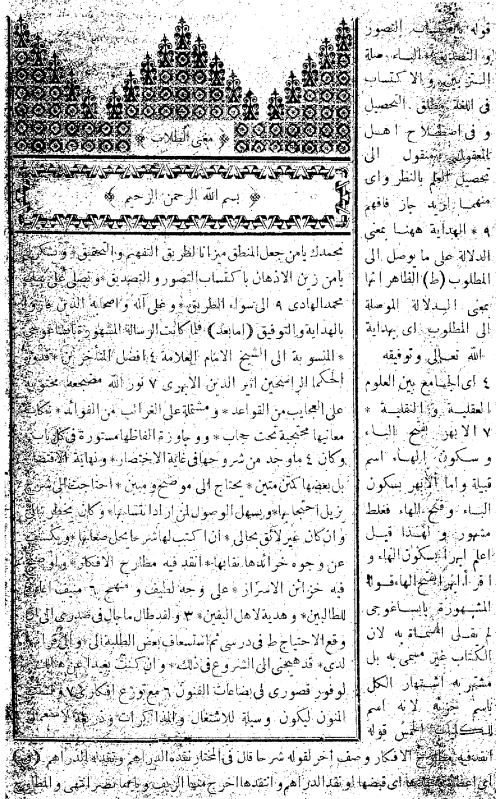 ﴿ مغنى الطلاب ﴾
﴿ بسم الله الرحمن الرحيم ﴾
نحمدك يامن جعل المنطق ميزانا لطريق التفهيم والتحقيق *
يامن زين الاذهان باكتساب التصور والتصديق * ونصلى على
محمد الهادى ٩ الى سواء الطريق * وعلى آله واصحابه الذين
بالهداية والتوفيق (امابعد) فلما كانت الرسالة المشهورة بايساغوجى
* المنسوبة الى الشيخ الامام العلامة ٤ افضل المتأخرين * قدوة
الحكماء الراسخين اثير الدين الابهرى ٧ نور الله مضجعه محتوية
على العجايب من القواعد * ومشتملة على الغرائب من الفوائد *
معانيها محتجبة تحت حجاب * ووجازة الفاظها مستورة فى كل باب
وكان ٤ ماوجد من شروحها فى غاية الاختصار * ونهاية الاقتصار
بل بعضها كمتن متين * يحتاج الى موضح ومبين * احتاجت الى شرح
يزيل احتجابها * ويسهل الوصول لمن اراد اقتباسها * وكان يخطر ببالى
وان كان غير لائق بحالى * ان اكتب لها شرحا يحل صعابها * ويكشف
عن وجوه خرائدها نقابها * انقد فيه مطارح الافكار *
فيه خزائن الاسرار * على وجه لطيف و منهج ٦ منيف
للطالبين * وهدية لاهل اليقين * ٣ ولقد طال ماجال فى صدرى
وقع الاحتياج ط فى درسى ثم استسعاف بعض الطلبة الى *
لدى * قد هيجنى الى الشروع فى ذلك * وان كنت بعيدا عن هنالك
لوفور قصورى فى بضاعات الفنون ٦ مع توزع افكارى ٧
المنون ليكون وسيلة للاشتغال والمذاكرات
قوله التصور
و التصديق الباء صلة
التزيين والاكتساب
فى اللغة مطلق التحصيل
و فى اصطلاح اهل
المعقول منقول الى
تحصيل العلم بالنظر واى
منهما اريد جاز فافهم
٩ * الهداية ههنا بمعنى
الدلالة على ما يوصل الى
المطلوب (ط) الظاهر انها
بمعنى الدلالة الموصلة
الى المطلوب اى بهداية
الله تعالى وتوفيقه
٤ اى الجامع بين العلوم
العقلية و النقلية *
٧ الابهر بفتح الباء
و سكون الهاء اسم
قبيلة واما الابهر بسكون
الباء وفتح الهاء فغلط
مشهور و لهذا قيل
اعلم ابهرا بسكون الهاء و
اقرأ ابهرا بفتح الهاء قوله
المشهورة بايساغوجى
لم يقل المسماة به لان
الكتاب غير مسمى به بل
مشتهر به اشتهار الكل
باسم جزئه لانه اسم
للكليات الخمس قوله
انقد فيه مطارح الافكار وصف آخر لقوله شرحا قال فى المختار نقده الدراهم ونقد له الدراهم
اى اعطاه اى قبضها ونقد الدراهم وانتقدها اخرج منها الزيف وبابهما نصر انتهى و